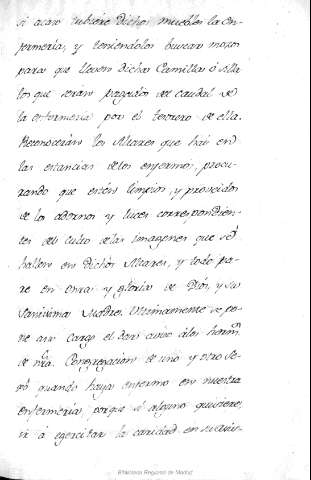 si acaso tubiere dichos muebles la en-
fermeria, y teniendolos buscar mozos
para que lleven dicha Camilla ó silla
los que seran pagados de caudal de
la enfermeria por el tesorero de ella.
Reconoceran los Altares que hai en
las estancias de los enfermos, procu-
rando que estén limpios, y proveidos
de los adornos y luces correspondien-
tes al culto de las Imagenes que se
hallen en dichos Altares, y todo pa-
re en onra y gloria de Dios, y su
Santisima Madre. Ultimamente se po-
ne a su cargo el dar aviso á los herm.os
de nra. Congregacion de uno y otro se-
xô quando haya enfermo en nuestra
enfermeria, porque si alguno quisiere
ir á egercitar la caridad en su asis-
Biblioteca Regional de Madrid